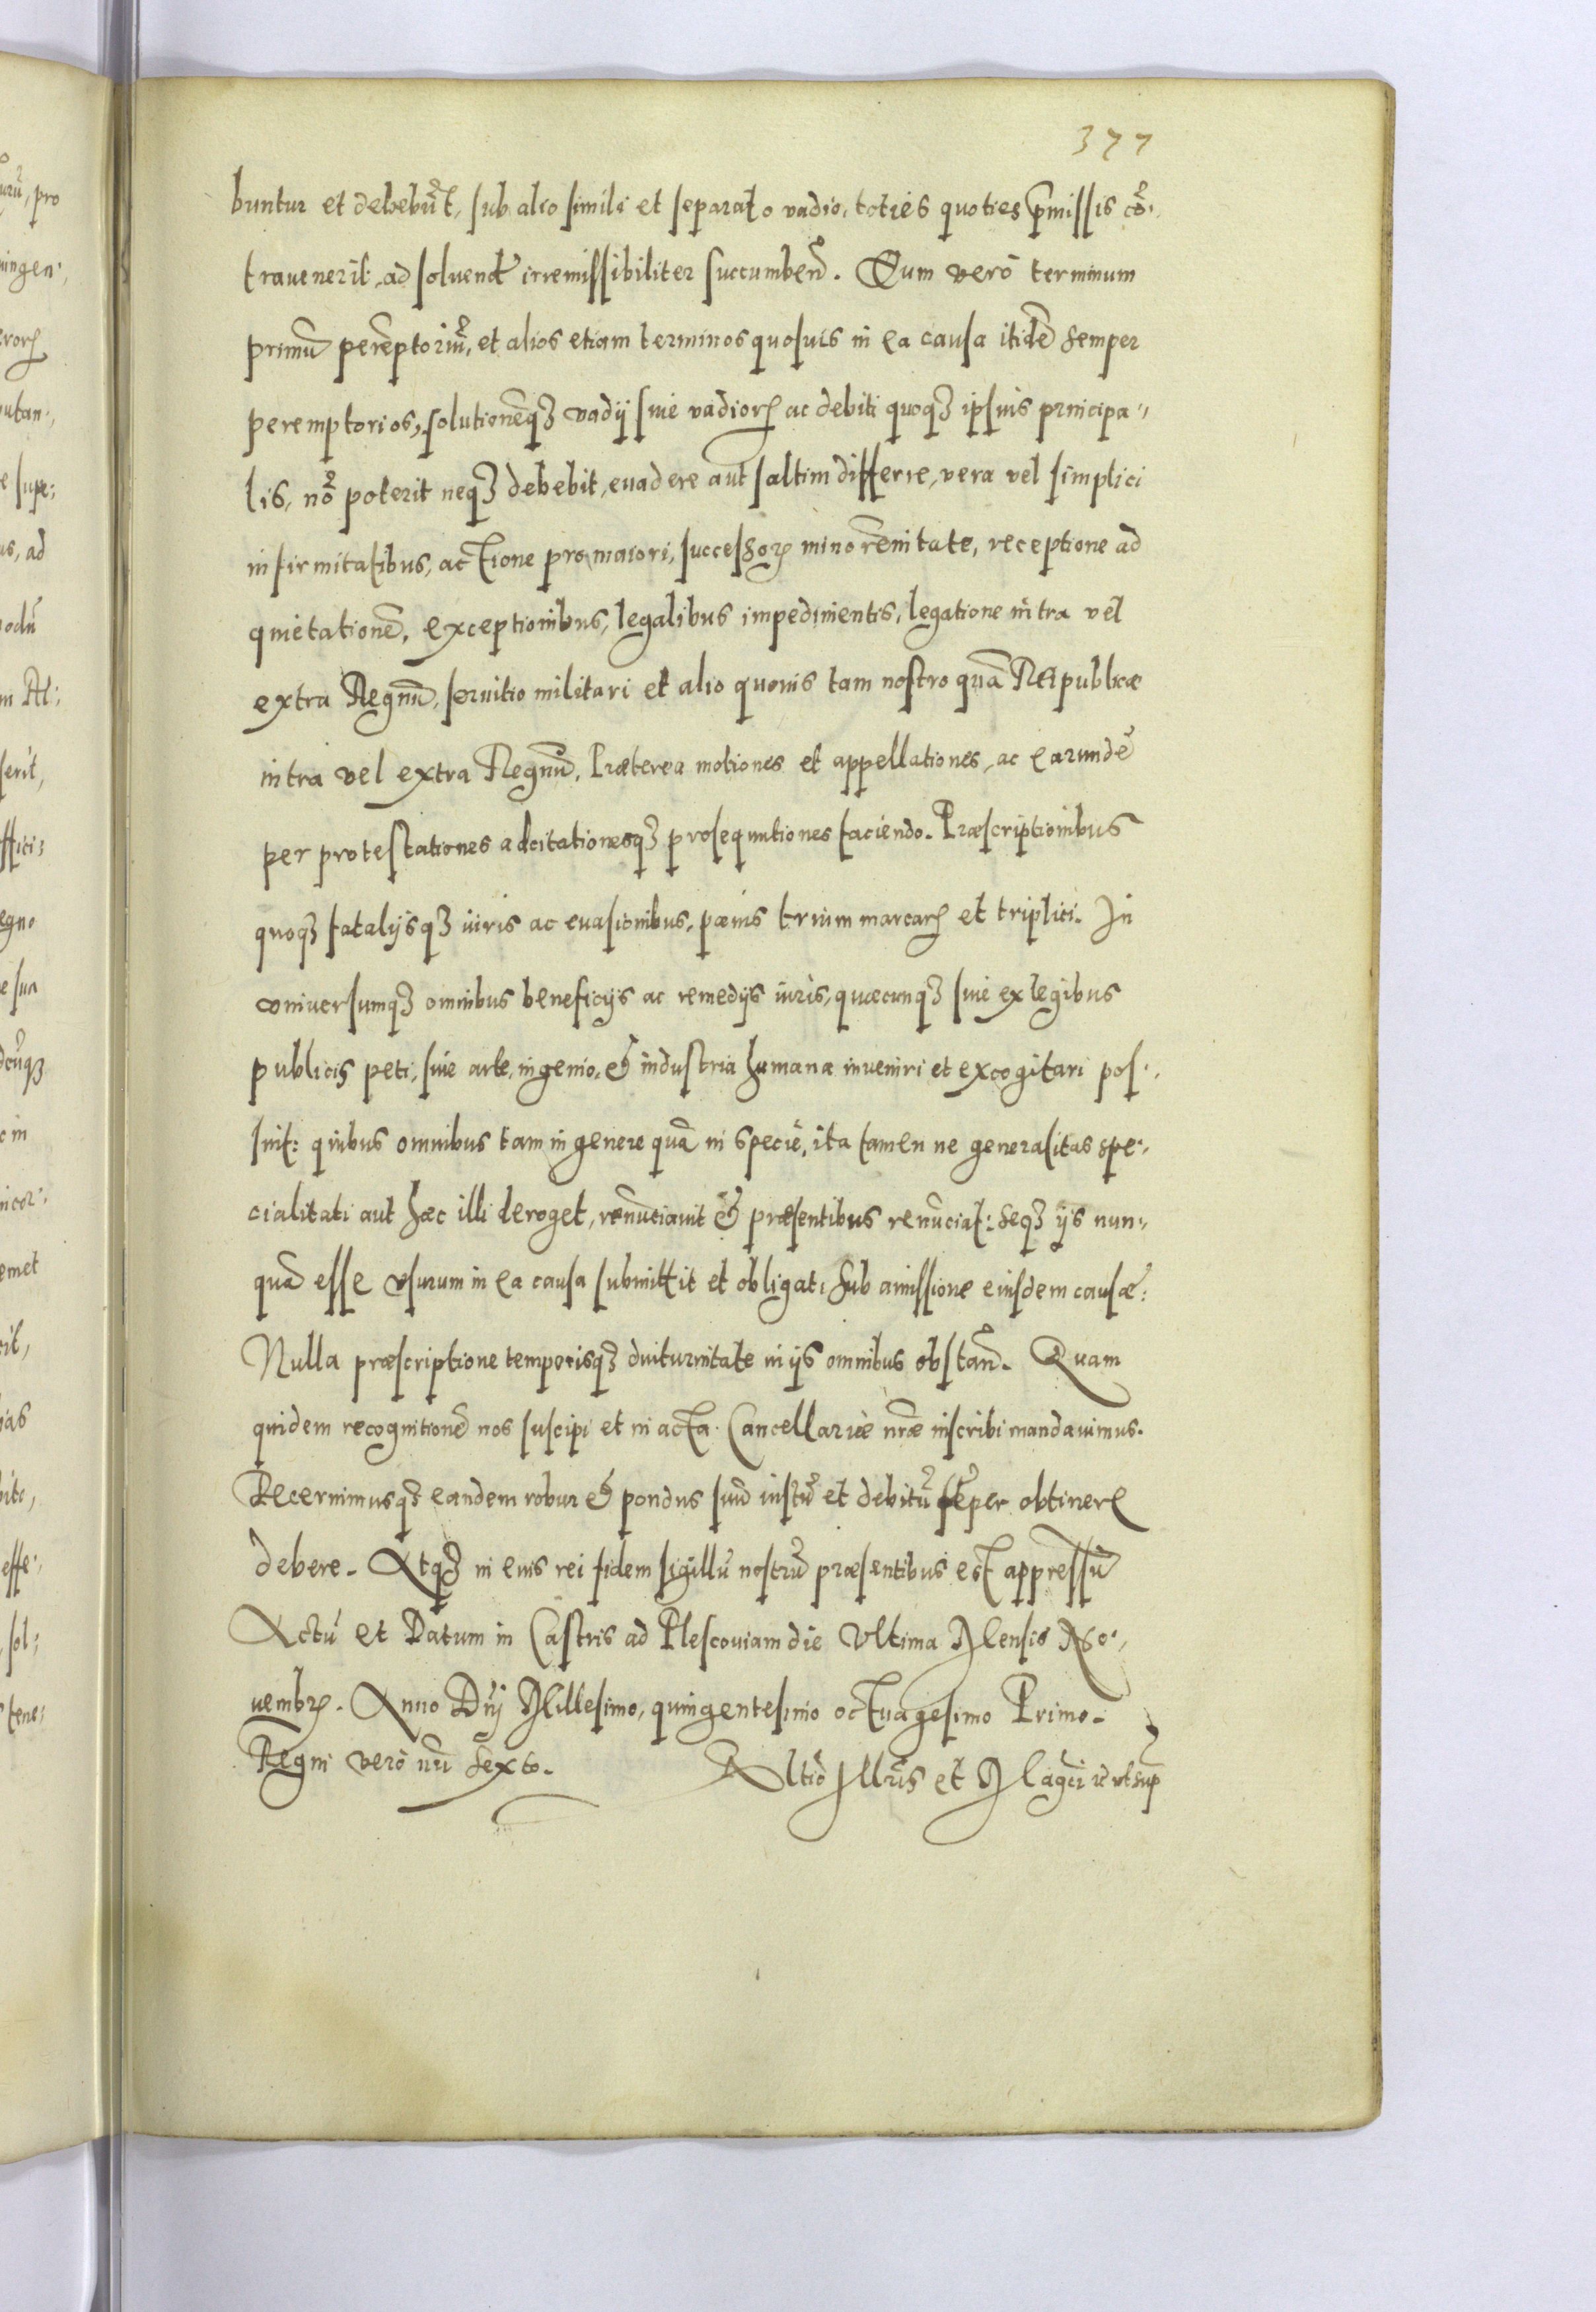 377
buntur et debebūt, sub alio simili et separato vadio, toties quoties p̄missis cō-,
trauenerit, ad soluend' irremissibiliter succumben̄. Qum verò terminum
primū perēptoriū, et alios etiam terminos quosuis in ea causa itidē semper
peremptorios, solutionēq3 vadij siue vadiorꝝ ac debiti quoq3 ipsius principa-,,
lis, nō poterit neq3 debebit, euadere aut saltim differre, vera vel simplici
infirmitatibus, actione pro maiori, successorꝝ minorēnitate, receptione ad
quietationē, exceptionibus, legalibus impedimentis, legatione intra vel
extra Regnū, seruitio militari et alio quouis tam nostro quā Reipublicæ
intra vel extra Regnū. Præterea motiones et appellationes, ac earundē
per protestationes adcitationesq3 prosequutiones faciendo. Præscriptionibus
quoq3 fatalijsq3 iuris ac euasionibus, pœnis trium marcarꝝ et triplici. In
vniuersumq3 omnibus beneficijs ac remedijs iuris, quæcunq3 siue ex legibus
publicis peti, siue arte, ingenio, & industria humana inveniri et excogitari pos-,
sint: quibus omnibus tam in genere quā in specie, ita tamen ne generalitas spe-,
cialitati aut hæc illi deroget, renūciauit & præsentibus renūciat: seq3 ijs nun-,
quā esse vsurum in ea causa submittit et obligat, sub amissione eiusdem causæ:
Nulla præscriptione temporisq3 diuturnitate in ijs omnibus obstan̄. Quam
quidem recognitionē nos suscipi et in acta Cancellariæ nræ inscribi mandauimus.
Decernimusq3 eandem robur & pondus suū iustū et debitū sēper obtinere
debere. Atq3 in euis rei fidem sigillū nostrū præsentibus est appressū
Actū et Datum in Castris ad Plescouiam die Vltima Mensis No-,
uembrꝭ. Anno Dnj Millesimo, quingentesimo octuagesimo Primo.
Regni verò nrī sexto. Rltiō Illris et Magci rc vt sup